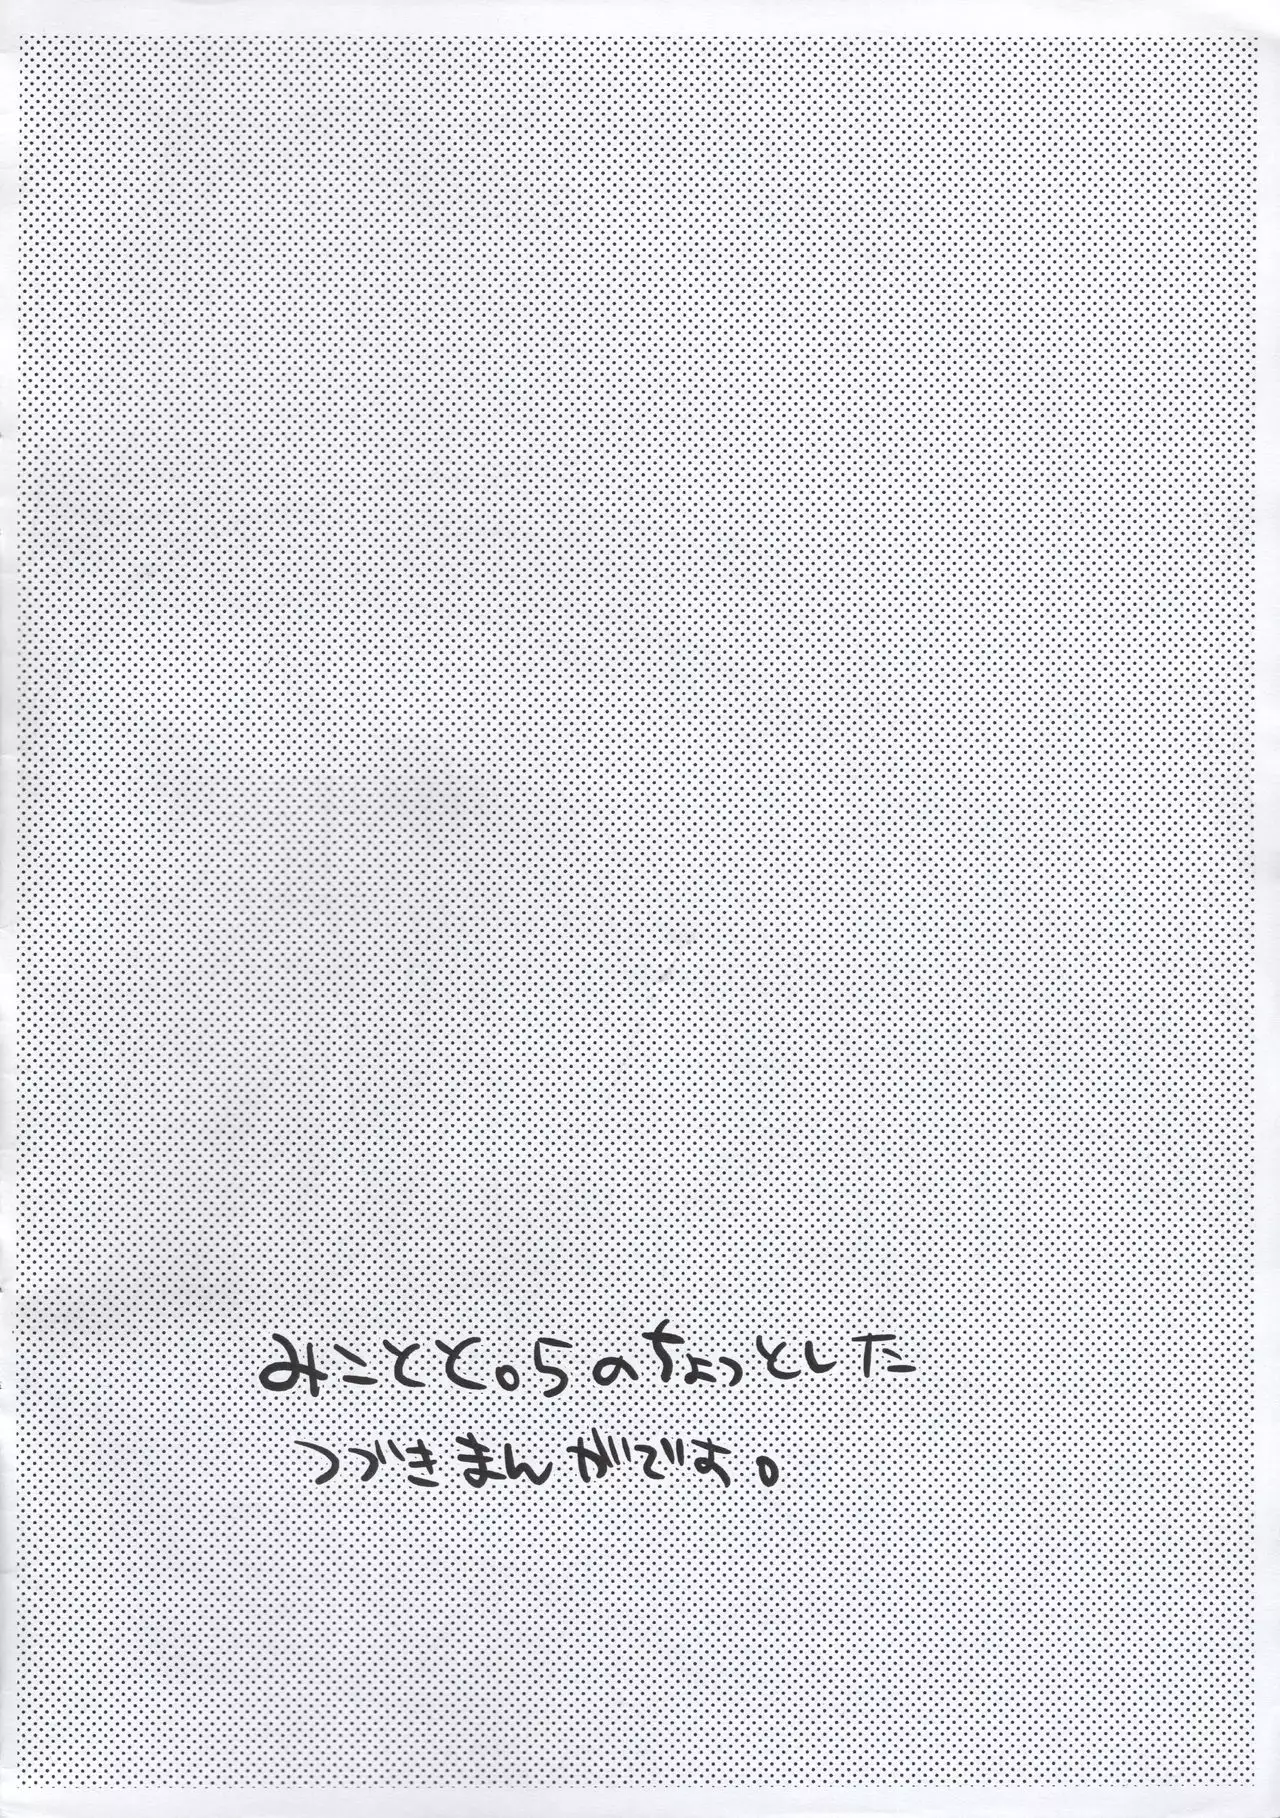 みことと。5のちょっとした
つづきまんがです。